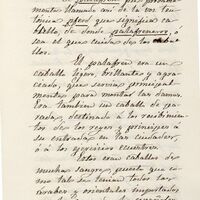 monton llamado así de la voz teu-
tónica pferd que significa ca-
ballo de donde palafrenero, o
sea el que cuida de los caba-
llos.
El palafrén era un
caballo ligero, brillante y agra-
ciado, que servía principal-
mente para montar las damas.
Era tambien un caballo de pa-
rada, destinado á los recibimien-
tos de los reyes y príncipes á
su entrada en las ciudades,
ó á los ejercicios ecuestres.
Estos eran caballos de
mucha sangre, puesto que en
su
árabes y orientales importados